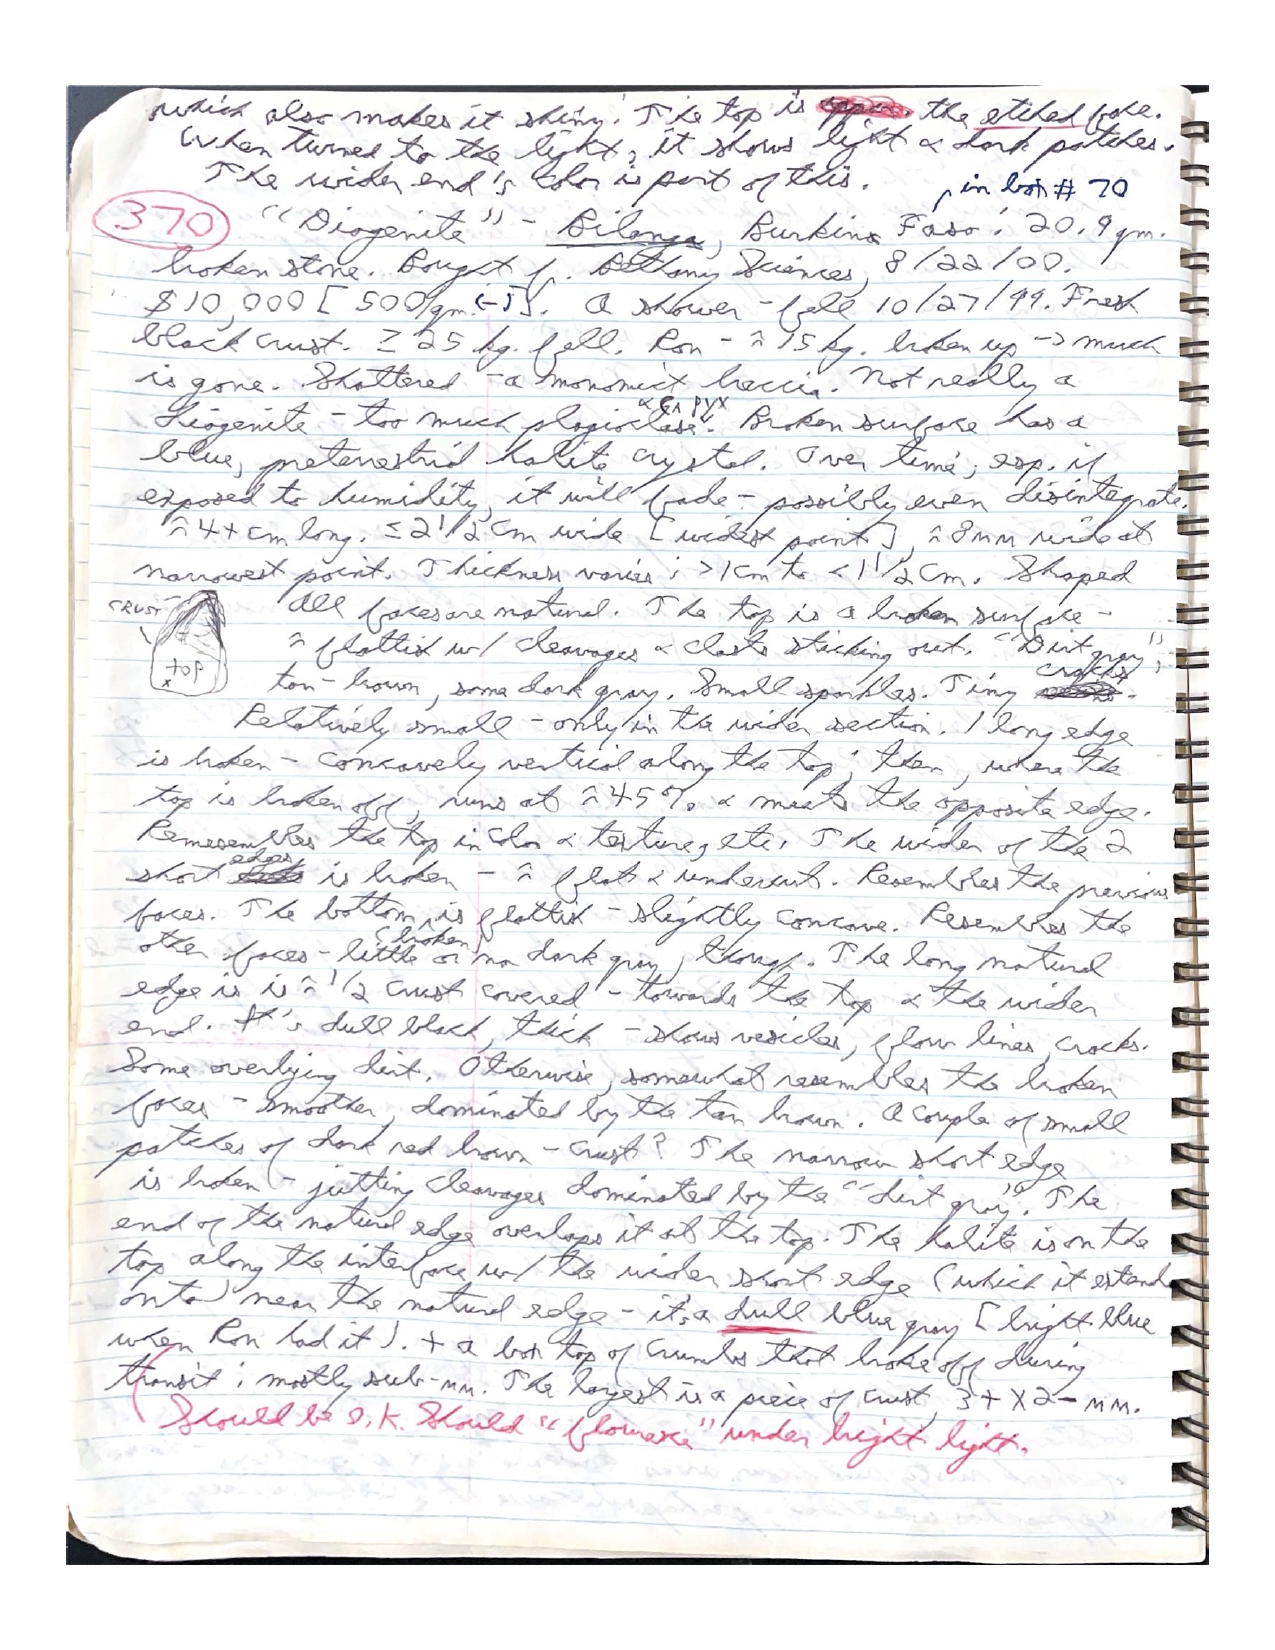 which also makes it shiny. The top is the etched face.
When turned to the light, it shows light & dark patches.
The wider end's color is part of this.
, in box # 70
370 "Diogenite" - Bilanga, Burkina Faso: 20.9 gm.
broken stone. Bought f. Bethany Sciences, 8/22/00.
$10,000 [500/gm. (-5]. A shower - fell 10/27/99. Fresh
black crust. ≥ 25 kg. fell. Ron - ≈ 15 kg. broken up -> much
is gone. Shattered - a monomict breccia. Not really a
& Ca pyx
diogenite - too much plagioclase. Broken surface has a
blue, preterrestrial halite crystal. Over time, esp. if
exposed to humidity, it will fade - possibly even disintegrate.
≈ 4+ cm long. ≤ 2 1/2 cm wide [widest point], ≈ 8 mm wide at
narrowest point. Thickness varies: >1cm to <1 1/2 cm. Shaped
CRUST
top
x
All faces are natural. The top is a broken surface -
≈ flattish w/ cleavages & clasts sticking out. "Dirt gray",
cracks
tan-brown, some dark gray. Small sparkles. Tiny .
Relatively small - only in the wider section. 1 long edge
is broken - concavely vertical along the top; then, where the
top is broken off, runs at ≈ 45°, & meets the opposite edge.
Remesembles the top in color & texture, etc. The wider of the 2
edges
short is broken - ≈ flat & undercut. Resembles the previous
faces. The bottom is flattish - slightly concave. Resembles the
(broken)
other faces - little or no dark gray, though. The long natural
edge is is ≈ 1/2 crust covered - towards the top & the wider
end. It's dull black, thick - shows vesicles, flow lines, cracks.
Some overlying dirt. Otherwise, somewhat resembles the broken
faces - smoother, dominated by the tan brown. A couple of small
patches of dark red brown - crust? The narrow short edge
is broken - jutting cleavages dominated by the "dirt gray". The
end of the natural edge overlaps it at the top. The halite is on the
top along the interface w/ the wider short edge (which it extends
onto) near the natural edge - it's a dull blue gray [bright blue
when Ron had it). + a box top of crumbs that broke off during
transit; mostly sub-mm. The largest is a piece of crust, 3+ X 2- mm.
Should be O.K. Should "flouresce" under bright light.